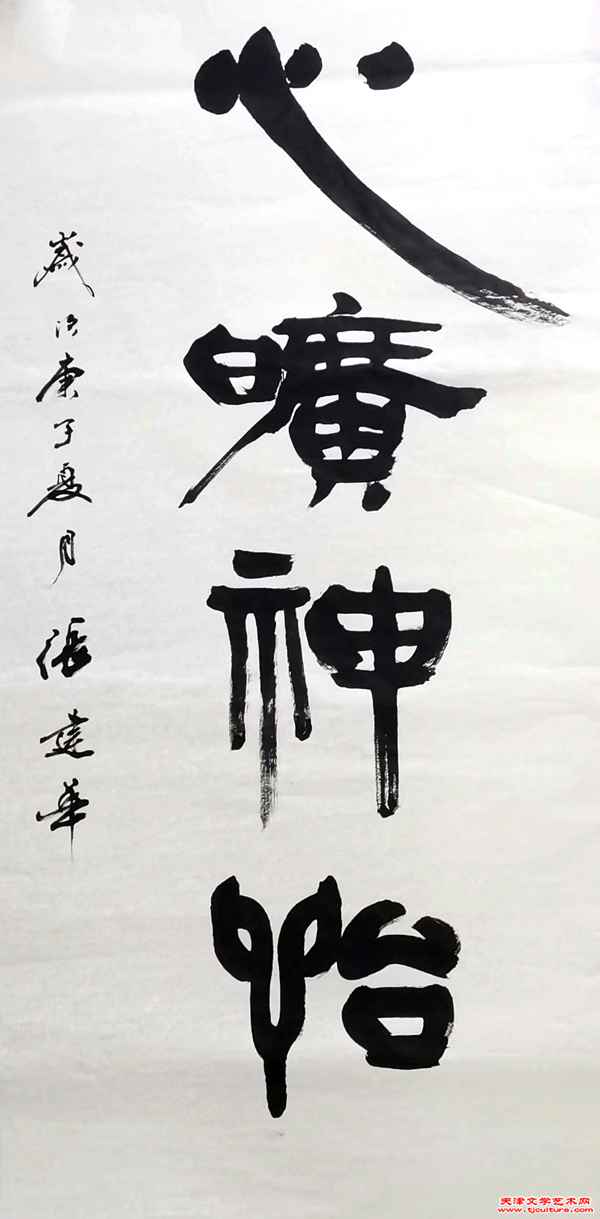 心曠神怡
歲次庚子夏月 張建華
天津文学艺术网
www.tjculture.com